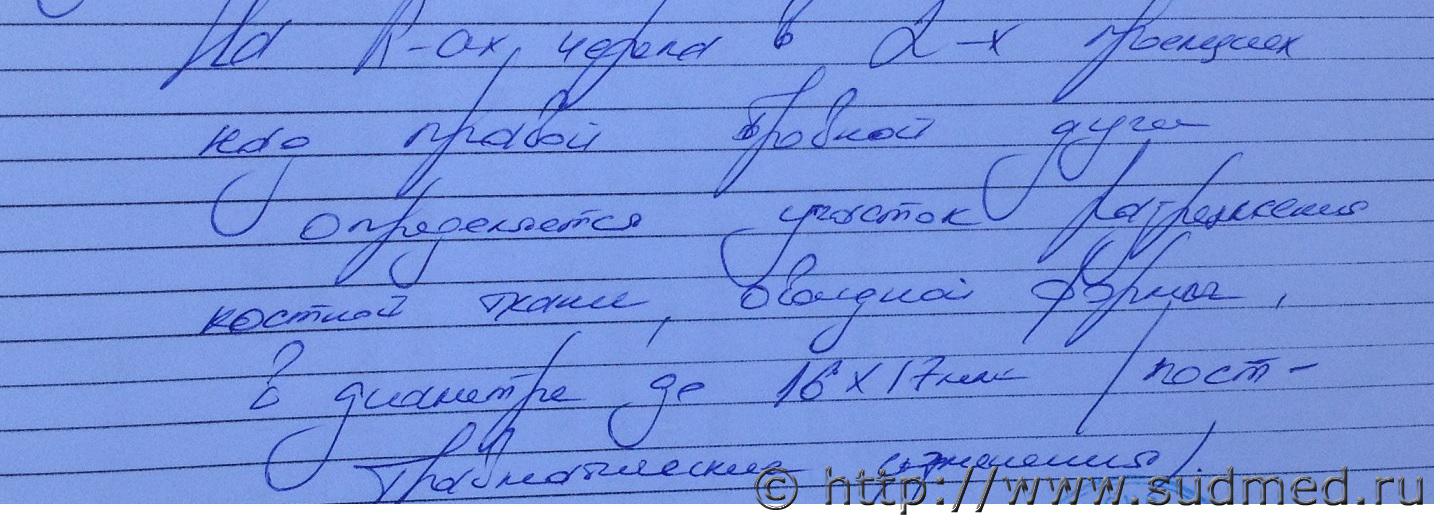 На R-ах черепа в 2-х проекциях
над правой бровной дугой
определяется участок разрежения
костной ткани, овоидной формы,
в диаметре до 16х17мм /пост-
травматические изменения/
© http://www.sudmed.ru